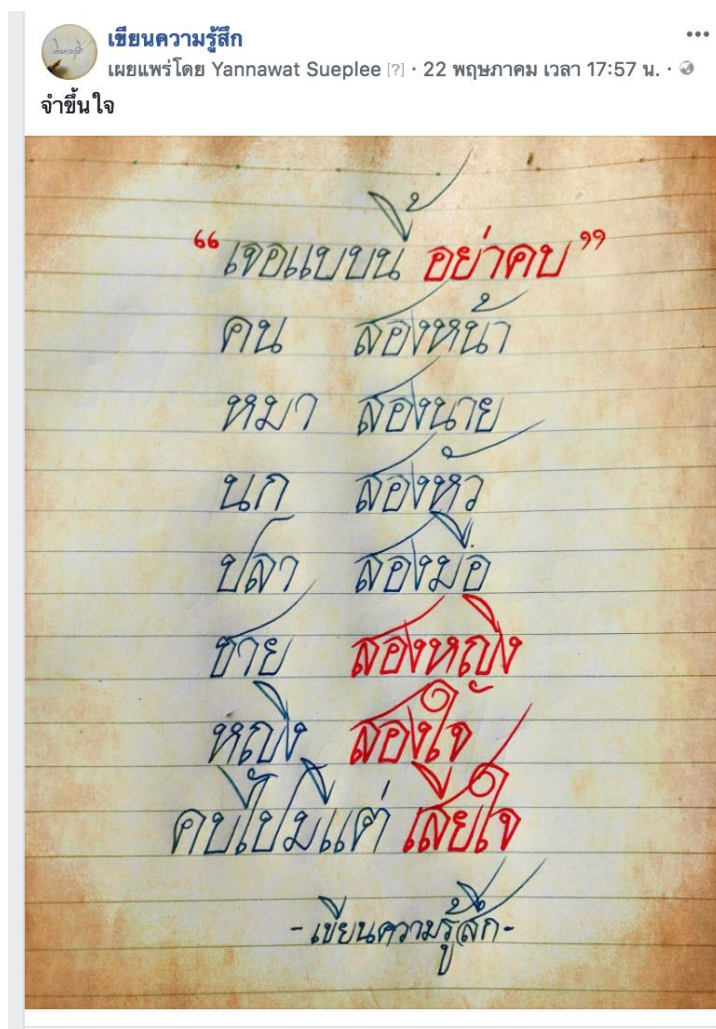 เขียนความรู้สึก
เผยแพร่โดย Yannawat Sueplee [?] · 22 พฤษภาคม เวลา 17:57 น. ·
จำขึ้นใจ
“เจอแบบนี้ อย่าคบ”
คน สองหน้า
หมา สองนาย
นก สองหัว
ปลา สองมือ
ชาย สองหญิง
หญิง สองใจ
คบไปมีแต่ เสียใจ
-เขียนความรู้สึก-